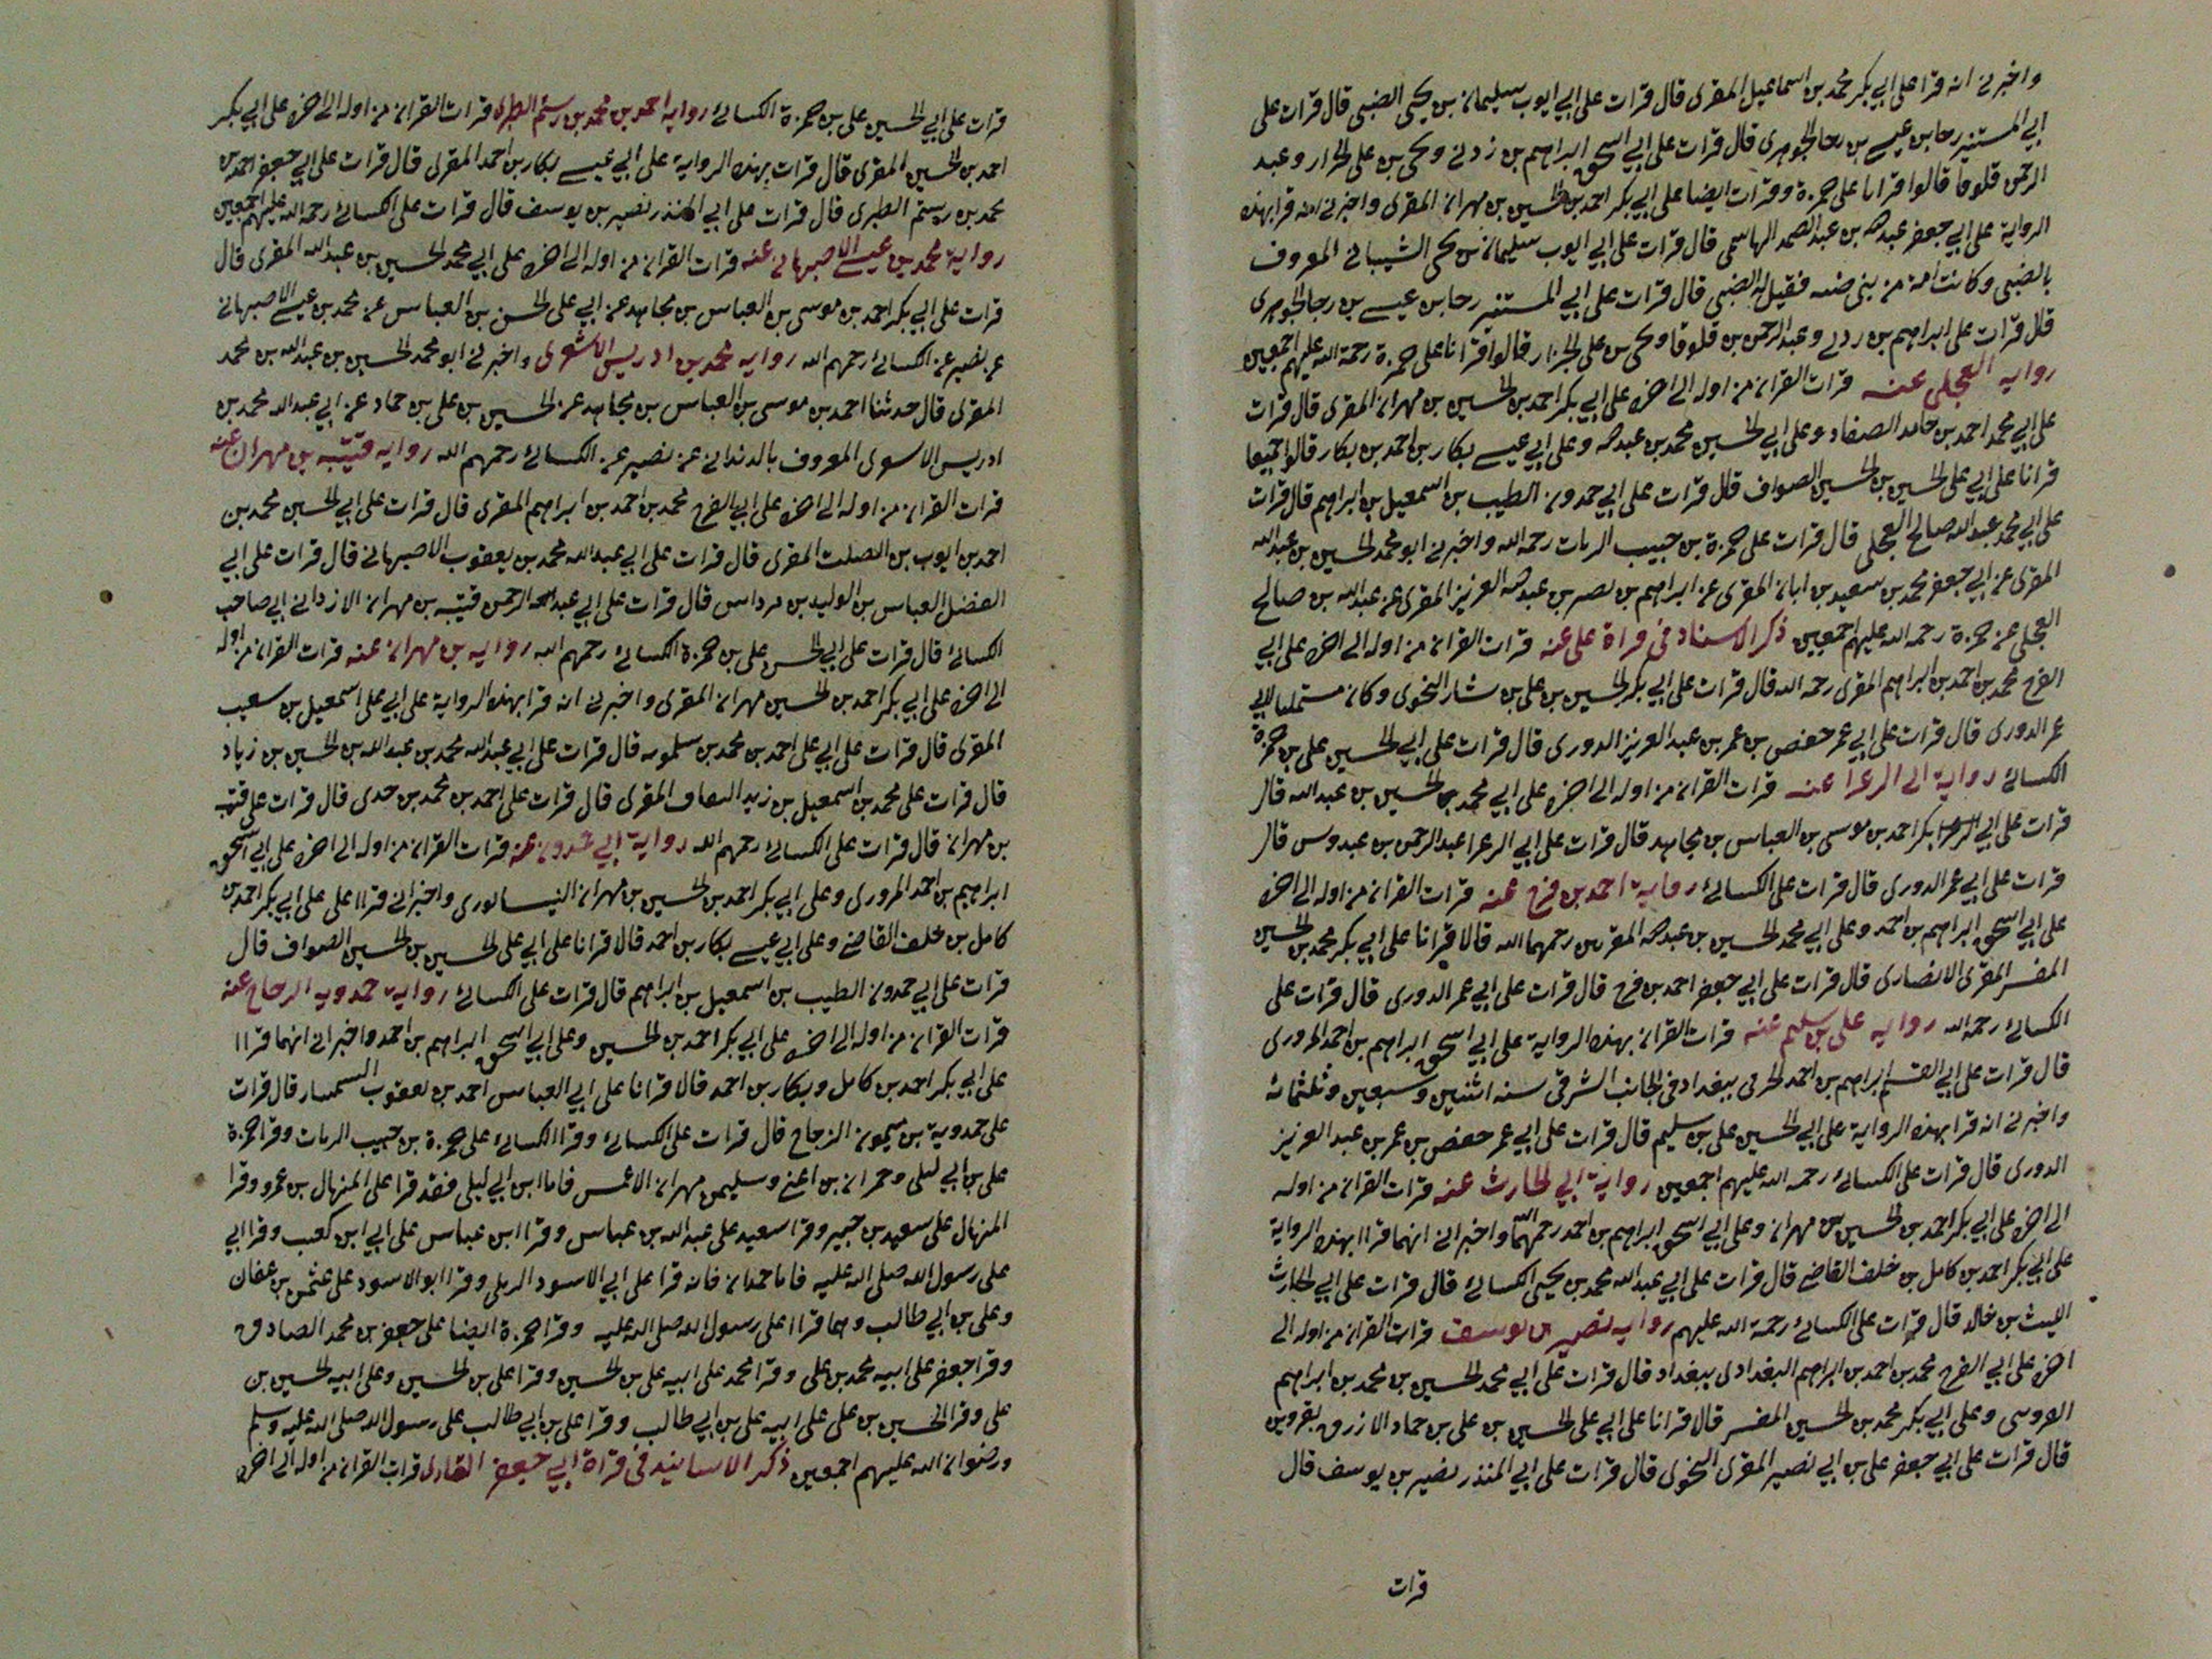 واخبرنى انه قرا على ابي بكر محمد بن اسماعيل المقرى قال قرات على ابي ايوب سليمان بن يحيى الضبى قال قرات على
ابي المستنير رجا بن عيسى بن رجا الجوهرى قال قرات على ابي اسحق ابراهيم بن زربى ويحيى بن على الخزار وعبد
الرحمن قلوقا قالوا قرانا على حمزة وقرات ايضا على ابي بكر احمد بن الحسين بن مهران المقرى واخبرنى انه قرا بهذه
الرواية على ابي جعفر عبد الله بن عبد الصمد الهاشمى قال قرات على ابي ايوب سليمان بن يحيى الشيبانى المعروف
بالضبى وكانت امه من بنى ضبه فقيل له الضبى قال قرات على ابي المستنير رجا بن عيسى بن رجا الجوهرى
قال قرات على ابراهيم بن زربى وعبد الرحمن بن قلوقا ويحيى بن على الخزار قالوا قرانا على حمزة رحمة الله عليهم اجمعين
رواية العجلى عنه قرات القران من اوله الى اخره على ابي بكر احمد بن الحسين بن مهران المقرى قال قرات
على ابي محمد احمد بن حامد الصفار وعلى ابي الحسين محمد بن عبد الله وعلى ابي عيسى بكار بن احمد بن بكار قالوا جميعا
قرانا على ابي على الحسين بن الحسين الصواف قال قرات على ابي حمدون الطيب بن اسمعيل بن ابراهيم قال قرات
على ابي محمد عبد الله صالح العجلى قال قرات على حمزة بن حبيب الزيات رحمه الله واخبرنى ابو محمد الحسين بن عبد الله
المقرى عن ابي جعفر محمد بن سعيد بن ابان المقرى عن ابراهيم بن نصر بن عبد العزيز المقرى عن عبد الله بن صالح
العجلى عن حمزة رحمه الله عليهم اجمعين ذكر الاسناد فى قراة على عنه قرات القران من اوله الى اخره على ابي
الفرج محمد بن احمد بن ابراهيم المقرى رحمه الله قال قرات على ابي بكر الحسين بن على بن بشار النحوى وكان مستمليا لابي
عمر الدورى قال قرات على ابي عمر حفص بن عمر بن عبد العزيز الدورى قال قرات على ابي الحسين على بن حمزة
الكسائى رواية ابى الزعرا عنه قرات القران من اوله الى اخره على ابي محمد الحسين بن عبد الله قال
قرات على ابي بكر احمد بن موسى بن العباس بن مجاهد قال قرات على ابي الزعرا عبد الرحمن بن عبدوس قال
قرات على ابي عمر الدورى قال قرات على الكسائى رواية احمد بن فرح عنه قرات القران من اوله الى اخره
على ابي اسحق ابراهيم بن احمد وعلى ابي محمد الحسين بن عبد الله المقريين رحمهما الله قالا قرانا على ابي بكر محمد بن الحسين
المفسر المقرى الانصارى قال قرات على ابي جعفر احمد بن فرح قال قرات على ابي عمر الدورى قال قرات على
الكسائى رحمه الله رواية على بن سليم عنه قرات القران بهذه الرواية على ابي اسحق ابراهيم بن احمد المروزى
قال قرات على ابي القسم ابراهيم بن احمد الخرقى ببغداد فى الجانب الشرقى سنه اثنين وسبعين وثلثمائه
واخبرنى انه قرا بهذه الرواية على ابي الحسين على بن سليم قال قرات على ابي عمر حفص بن عمر بن عبد العزيز
الدورى قال قرات على الكسائى رحمه الله عليهم اجمعين رواية ابي الحارث عنه قرات القران من اوله
الى اخره على ابي بكر احمد بن الحسين بن مهران وعلى ابي اسحق ابراهيم بن احمد رحمهما الله واخبرانى انهما قراا بهذه الرواية
على ابي بكر احمد بن كامل بن خلف القاضى قال قرات على ابي عبد الله محمد بن يحيى الكسائى قال قرات على ابي الحارث
الليث بن خالد قال قرات على الكسائى رحمة الله عليهم رواية نصير بن يوسف قرات القران من اوله الى
اخره على ابي الفرج محمد بن احمد بن ابراهيم البغدادى ببغداد قال قرات على ابي محمد الحسين بن محمد بن ابراهيم
وعلى ابي بكر محمد بن الحسين المفسر قالا قرانا على ابي على الحسين بن على بن حماد الازرق بقزوين
قال قرات على ابي جعفر على بن ابي نصير المقرى النحوى قال قرات على ابي المنذر نصير بن يوسف قال
قرات
قرات على ابي الحسين على بن حمزة الكسائى رواية احمد بن محمد بن رستم الطبرى قرات القران من اوله الى اخره على ابي بكر
احمد بن الحسين المقرى قال قرات بهذه الرواية على ابي عيسى بكار بن احمد المقرى قال قرات على ابي جعفر احمد بن
محمد بن رستم الطبرى قال قرات على ابي المنذر نصير بن يوسف قال قرات على الكسائى رحمة الله عليهم اجمعين
رواية محمد بن عيسى الاصبهانى عنه قرات القران من اوله الى اخره على ابي محمد الحسين بن عبد الله المقرى قال
قرات على ابي بكر احمد بن موسى بن العباس بن مجاهد عن ابي على الحسن بن العباس عن محمد بن عيسى الاصبهانى
عن نصير عن الكسائى رحمهم الله رواية محمد بن ادريس الاشعرى واخبرنى ابو محمد الحسين بن عبد الله بن محمد
المقرى قال حدثنا احمد بن موسى بن العباس بن مجاهد عن الحسين بن على بن حماد عن ابي عبد الله محمد بن
ادريس الاسوى المعروف بالدندانى عن نصير عن الكسائى رحمهم الله رواية قتيبه بن مهران عنه
قرات القران من اوله الى اخره على ابي الفرج محمد بن احمد بن ابراهيم المقرى قال قرات على ابي الحسين محمد بن
احمد بن ايوب بن الصلت المقرى قال قرات على ابي عبد الله محمد بن يعقوب الاصبهانى قال قرات على ابي
الفضل العباس بن الوليد بن مرداس قال قرات على ابي عبد الرحمن قتيبه بن مهران الازدانى صاحب
الكسائى قال قرات على ابي الحسن على بن حمزة الكسائى رحمهم الله رواية بن مهران عنه قرات القران من اوله
الى اخره على ابي بكر احمد بن الحسين مهران المقرى واخبرنى انه قرا بهذه الرواية على ابي على اسمعيل بن سعيب
المقرى قال قرات على ابي على احمد بن محمد بن سلمويه قال قرات على ابي عبد الله محمد بن عبد الله بن الحسين بن زياد
قال قرات على محمد بن اسمعيل بن زيد المقرى قال قرات على احمد بن محمد بن حدى قال قرات على قتيبه
بن مهران قال قرات على الكسائى رحمهم الله رواية ابي حمدون عنه قرات القران من اوله الى اخره على ابي اسحق
ابراهيم بن احمد المروزى وعلى ابي بكر احمد بن الحسين بن مهران النيسابورى واخبرانى قراا على على ابي بكر احمد بن
كامل بن خلف القاضى وعلى ابي عيسى بكار بن احمد قالا قرانا على ابي على الحسين بن الحسين الصواف قال
قرات على ابي حمدون الطيب بن اسمعيل بن ابراهيم قال قرات على الكسائى رواية حمدويه الزجاج عنه
قرات القران من اوله الى اخره على ابي بكر احمد بن الحسين وعلى ابي اسحق ابراهيم بن احمد واخبرانى انهما قراا
على ابي بكر احمد بن كامل وبكار بن احمد قالا قرانا على ابي العباس احمد بن يعقوب السمسار قال قرات
على حمدوية بن ميمون الزجاج قال قرات على الكسائى وقرا الكسائى على حمزة بن حبيب الزيات وقرا حمزة
على بن ابي ليلى وحمران بن اعين وسليمن مهران الاعمش فاما ابن ابي ليلى فقد قرا على المنهال بن عمرو وقرا
المنهال على سعيد بن جبير وقرا سعيد على عبد الله بن عباس وقرا ابن عباس على ابي ابن كعب وقرا ابي
على رسول الله صلى الله عليه فاما حمدان فانه قرا على ابي الاسود الديلى وقرا ابو الاسود على عثمن بن عفان
وعلى بن ابي طالب وهما قراا على رسول الله صلى الله عليه وقرا حمزة ايضا على جعفر بن محمد الصادق
وقرا جعفر على ابيه محمد بن على وقرا محمد على ابيه على بن الحسين وقرا على بن الحسين وعلى ابيه الحسين بن
على وقرا الحسين بن على على ابيه على بن ابي طالب وقرا على بن ابي طالب على رسول الله صلى الله عليه وسلم
ورضوان الله عليهم اجمعين ذكر الاسانيد فى قراة ابي جعفر القارى قرات القران من اوله الى اخره